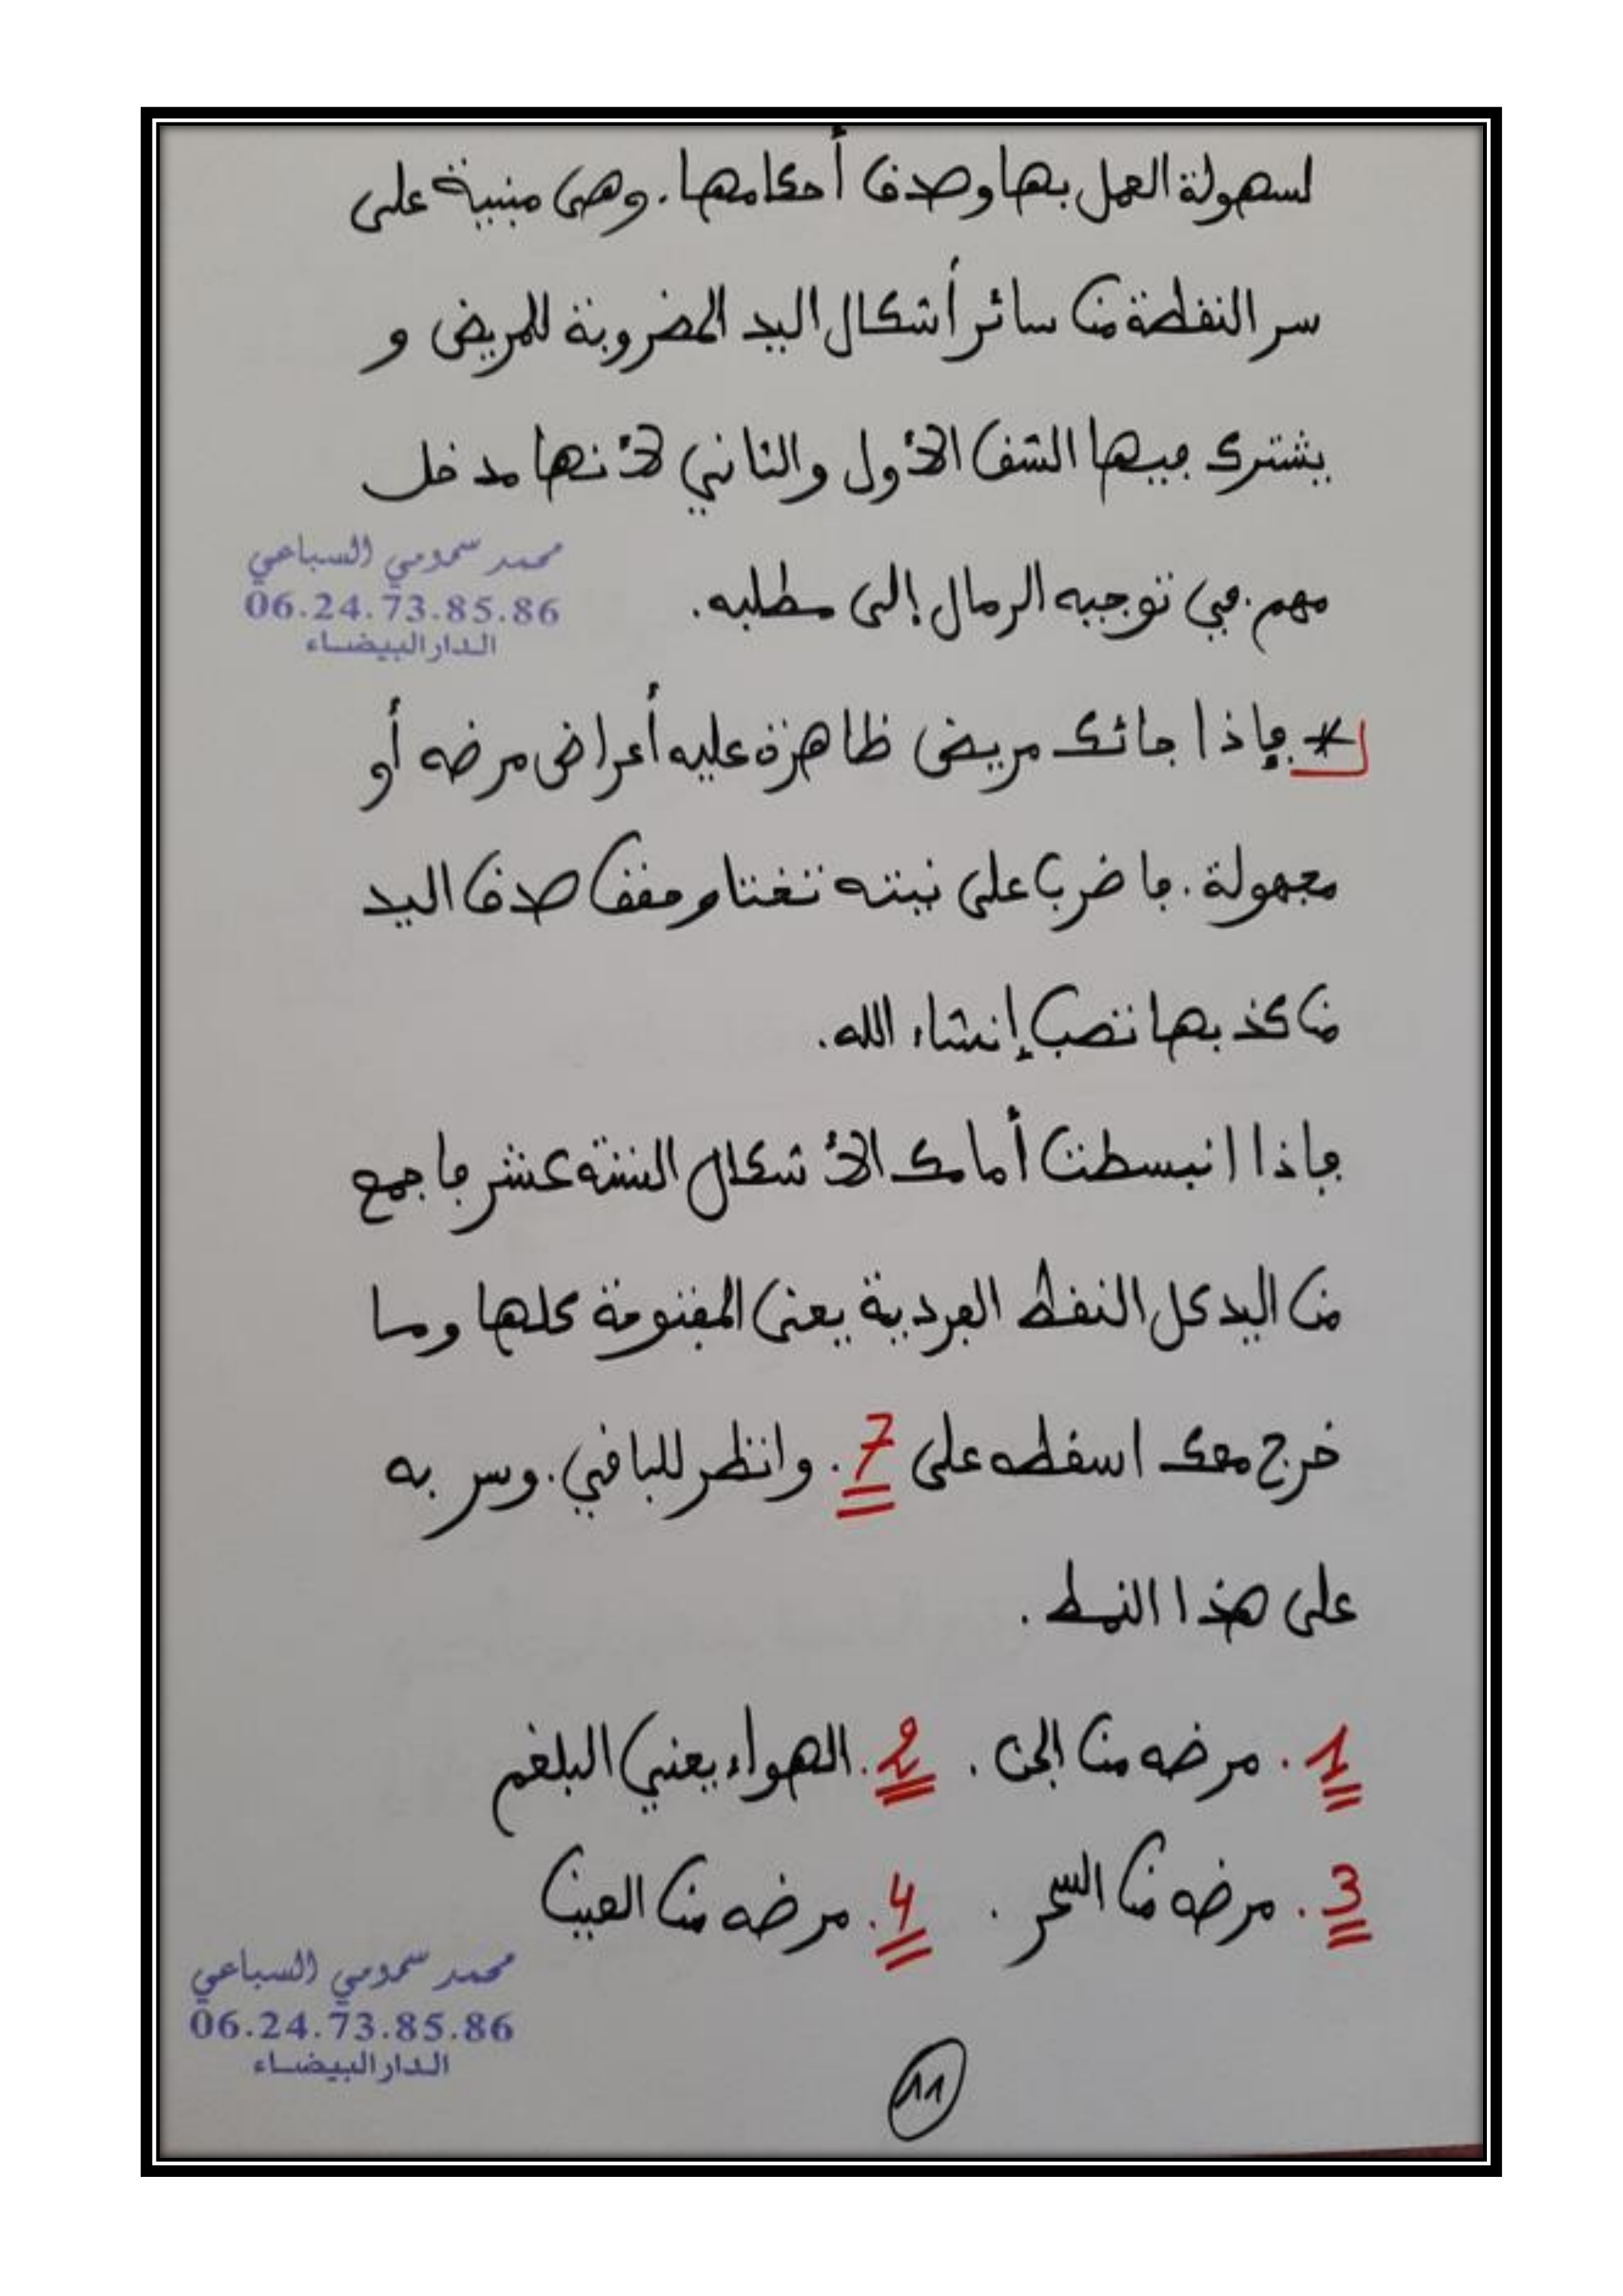 لسهولة العمل بها وصدق أحكامها. وهي مبنية على
سر النقطة من سائر أشكال اليد المضروبة للمريض و
يشترك فيها الشق الأول والثاني لأنها مدخل
مهم في توجيه الرمال إلى مطلبه.
محمد سمومي السباعي
06.24.73.85.86
الدار البيضاء
* فإذا جائك مريض ظاهرة عليه أعراض مرضه أو
مجهولة. فاضرب على نيته تختا وحقق صدق اليد
من كذبها تصب إنشاء الله.
فإذا انبسطت أمامك الأشكال الستة عشر فاجمع
من اليد كل النقط الفردية يعني المفتوحة كلها وما
خرج معك اسقطه على 7. وانظر للباقي. وسر به
على هذا النمط.
1. مرضه من الجن. 2. الهواء يعني البلغم
3. مرضه من السحر. 4. مرضه من العين
محمد سمومي السباعي
06.24.73.85.86
الدار البيضاء
11